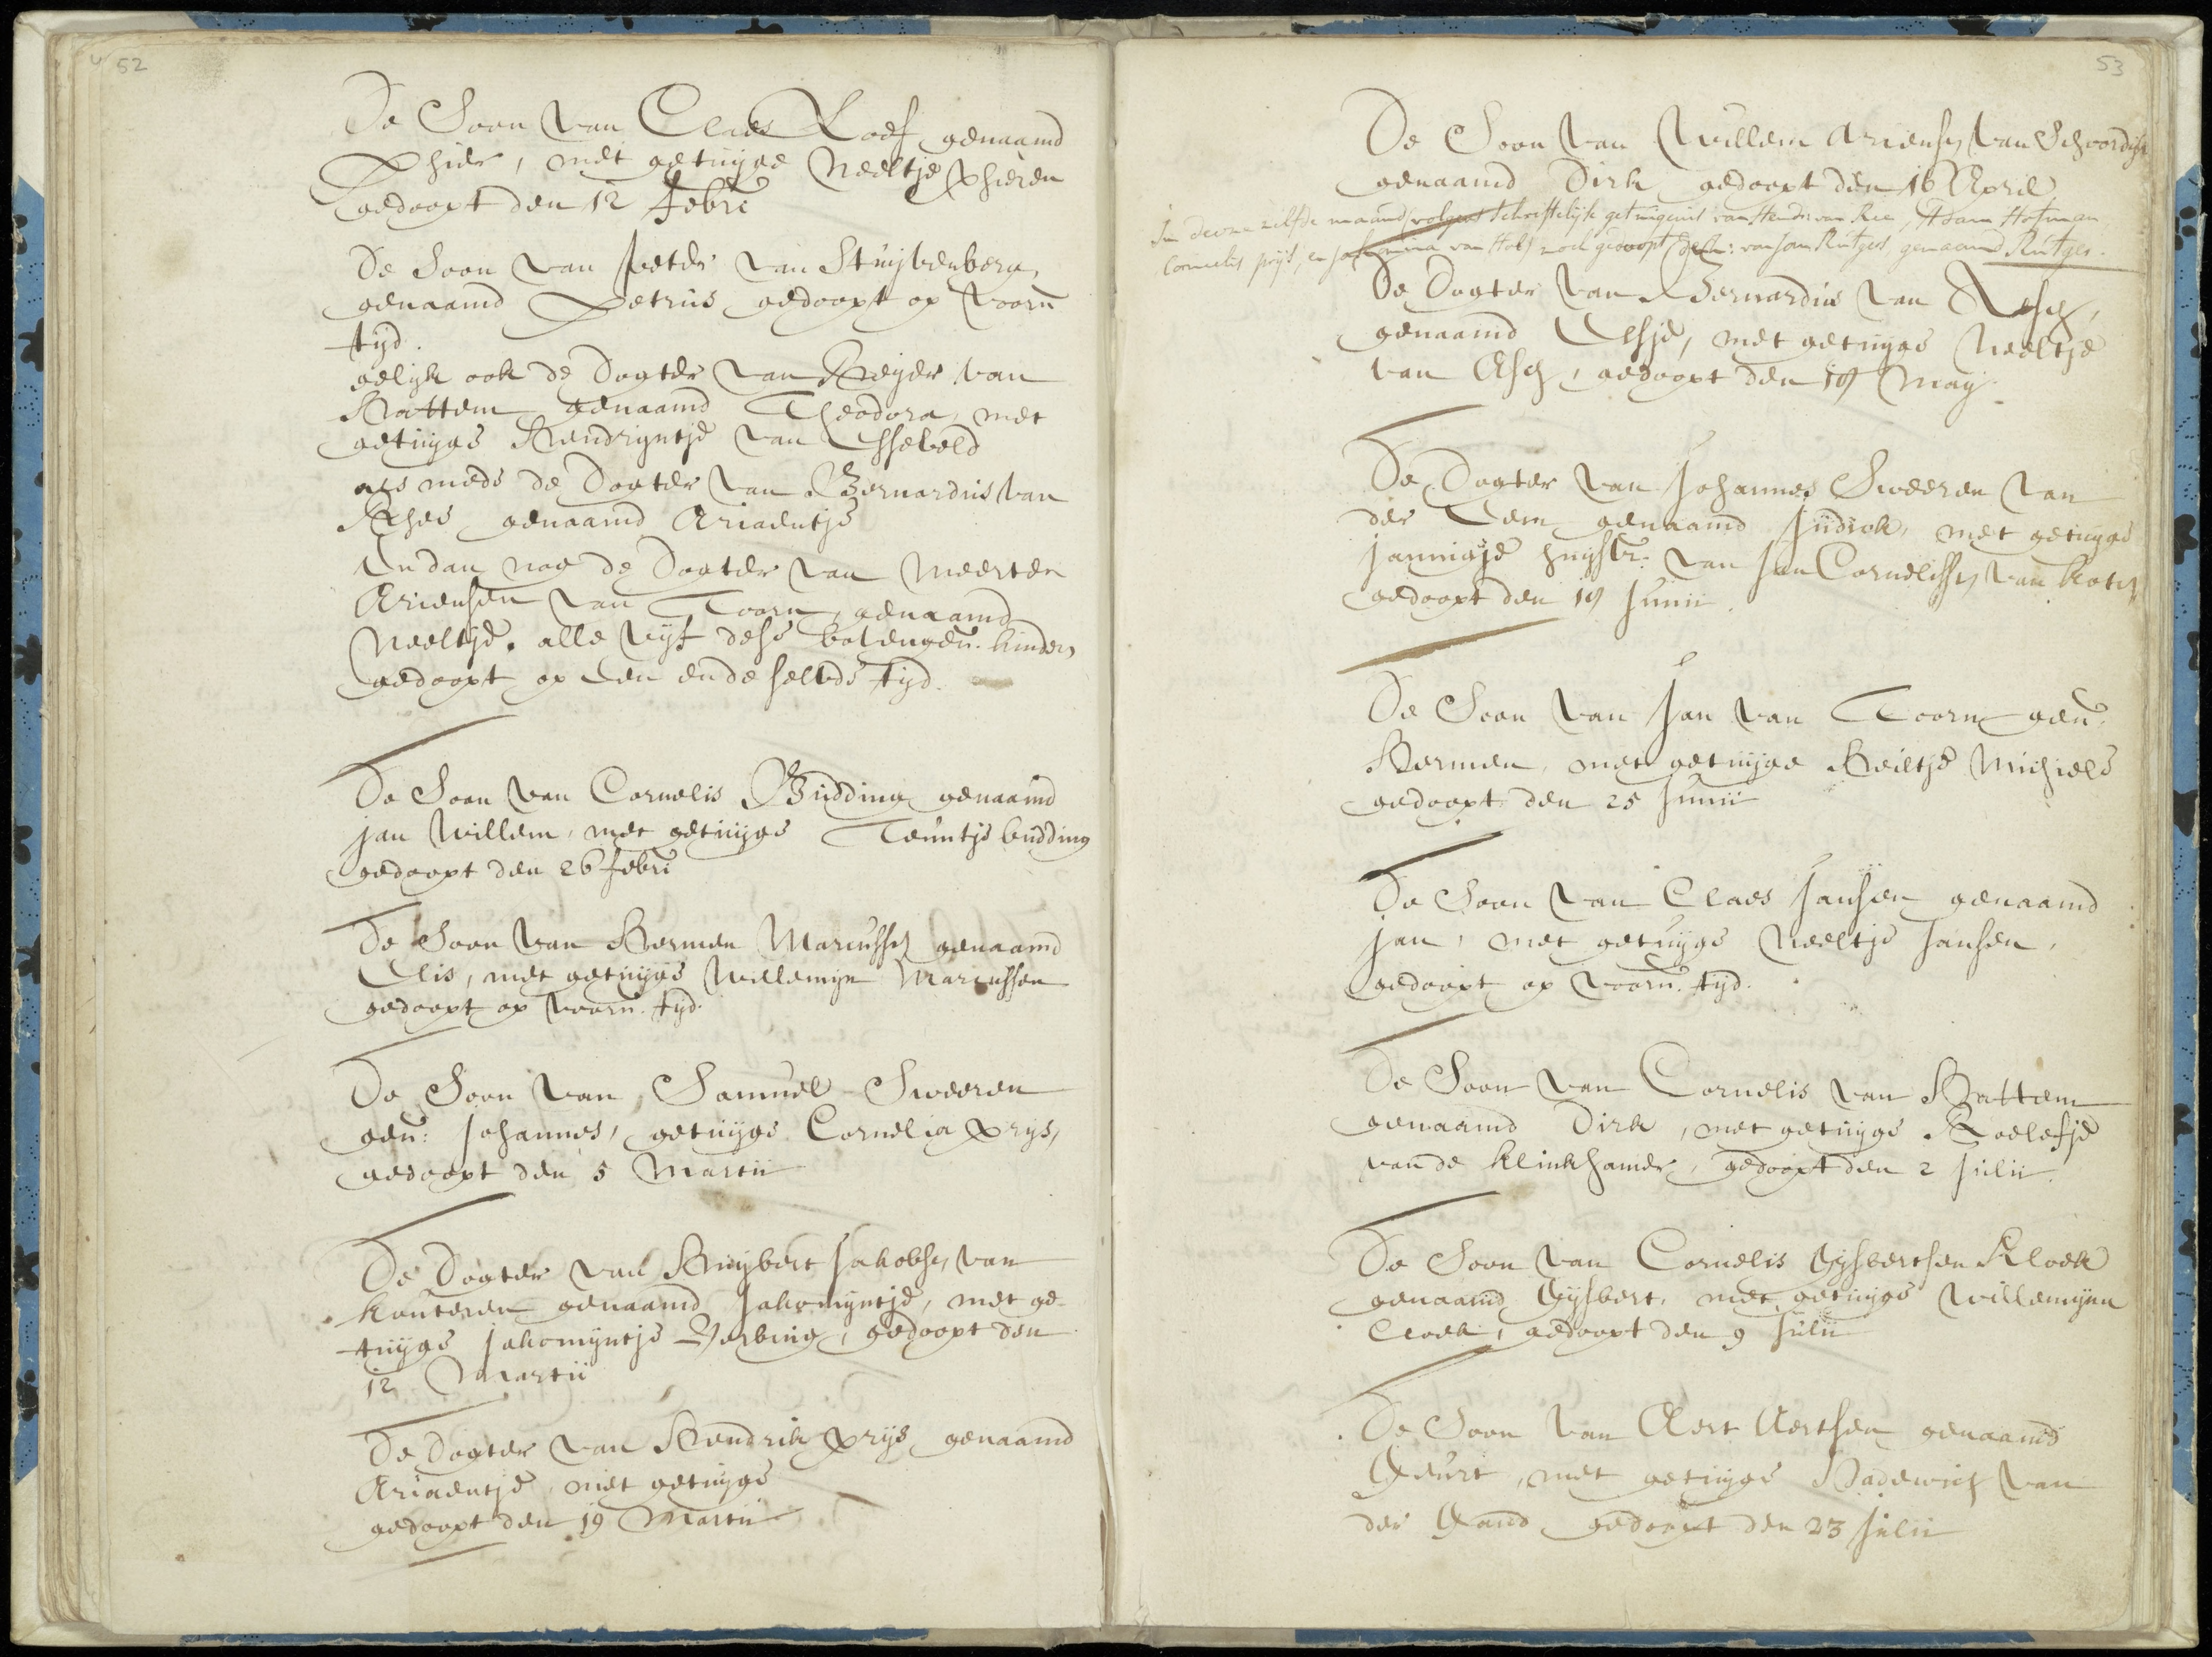 52
De Soon van Claes Roef genaamd
Phier, met getuijge Neeltje Phieren
gedoopt den 12 febri
De Soon van Peter van Stuijvenberg,
genaamd Petrus gedoopt op voorn
tijd.
gelijk ook de Dogter van Reijer van
Hattem genaamd Theodora, met
getuijge Hendrijntje van Esseveld
als mede de Dogter van Bernardus van
Rhee genaamd Ariaentje
En dan nog de Dogter van Meerten
Ariensen van Toorn, genaamd
Neeltje. alle vijf dese bovengen. kinders
gedoopt op een ende selvde tijd.
De Soon van Cornelis Budding genaamd
jan Willem, met getuijge Teuntje budding
gedoopt den 26 febri
De Soon van Hermen Mariussen genaamd
Elis, met getuijge Willemijn Mariussen
gedoopt op voorn. tijd.
De Soon van Samuel Sweeren
gen: Johannes, getuijge Cornelia Prijs,
gedoopt den 5 Martii
De Dogter van Huijbert Jakobsen van
Kouteren genaamd Jakomijntje, met ge-
tuijge Jakomijntje gedoopt den
12 Martii
De Dogter van Hendrik Prijs genaamd
Ariaentje, met getuijge
gedoopt den 19 Martii
53
De Soon van Willem Ariensen van Schoordijk
genaamd Dirk gedoopt den 16 April
In deeze zelfde maand volgens schriftelijk getuigenis van Hendr: van Ree, Adam Hofman
Cornelis prijs, en Jakomina van Hals nog gedoopt de Zn: van Jan Rutgers genaamd Rutger.
De Dogter van Bernardus van Asch,
genaamd Elsje, met getuijge Neeltje
van Asch, gedoopt den 19 Maij.
De Dogter van Johannes Sweeren van
der Eem genaamd Judick, met getuijge
Jannigje huijsvr. van Jan Cornelissen van
gedoopt den 19 Junii.
De Soon van Jan van Toorn gen.
Hermen, met getuijge Heiltje Michiels
gedoopt den 25 Junii
De Soon van Claes Jansen genaamd
jan, met getuijge Neeltje Jansen,
gedoopt op voorn. tijd.
De Soon van Cornelis van Hattem
genaamd Dirk, met getuijge Roelofje
van de Klinkhamer, gedoopt den 2 Julii.
De Soon van Cornelis Gijsbertsen Kloek
genaamd Gijsbert, met getuijge Willemijnn
Cloek, gedoopt den 9 Julii
De Soon van Aert Aertsen genaamd
Geurt, met getuijge Hadewich van
der Hand gedoopt den 23 Julii